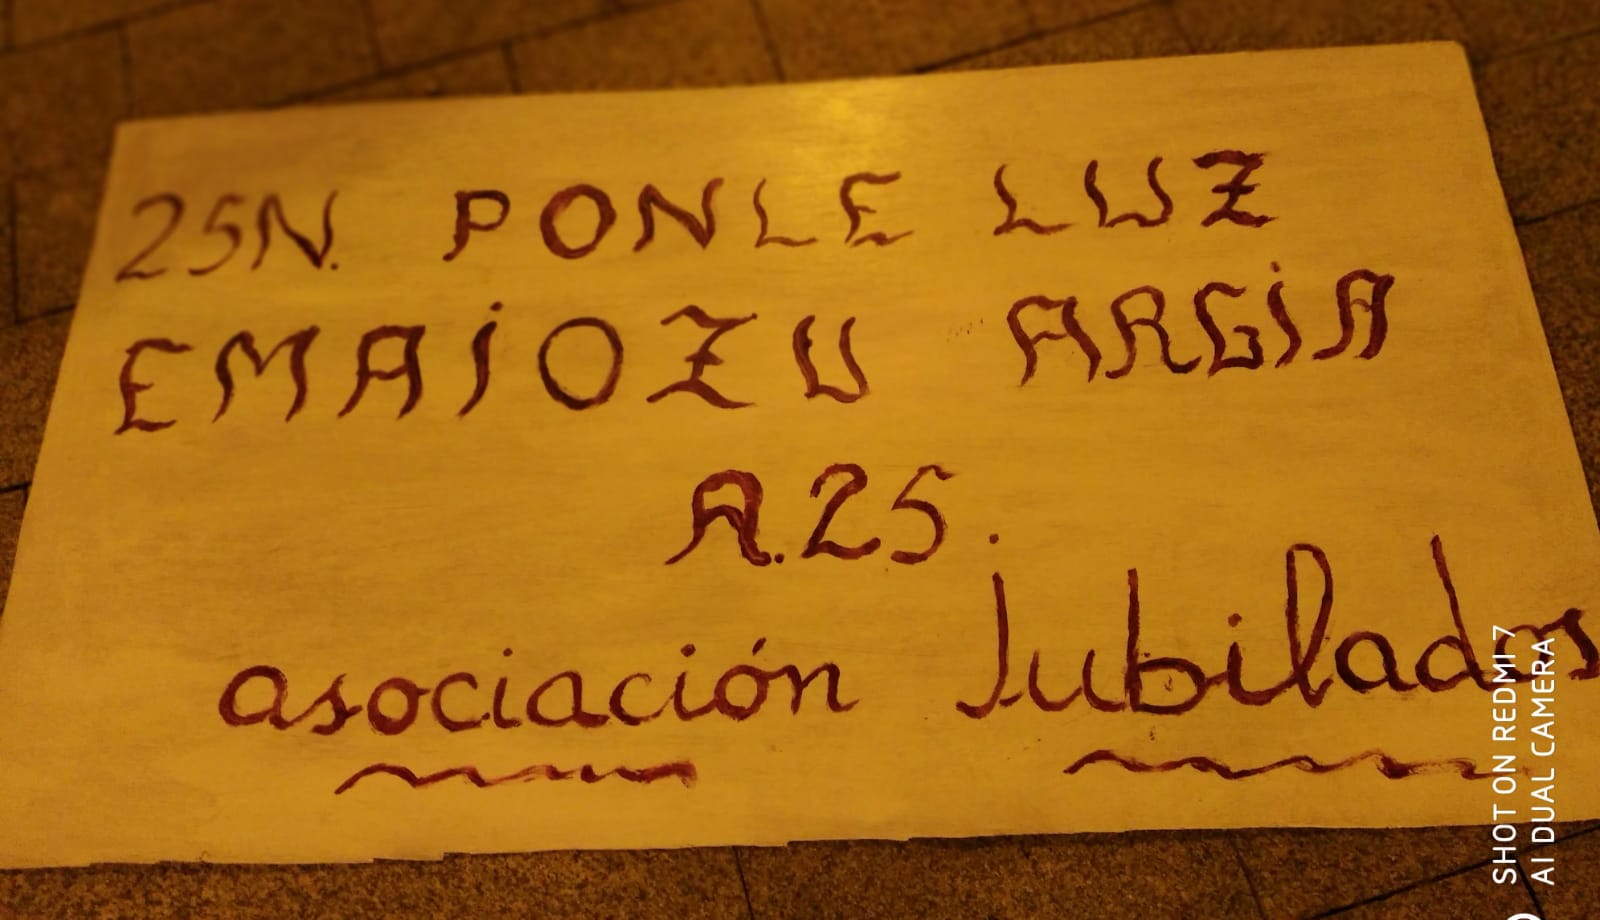 25N. PONLE LUZ
EMAIOZU ARGIA
A.25.
asociación Jubilados
SHOT ON REDMI 7
AI DUAL CAMERA